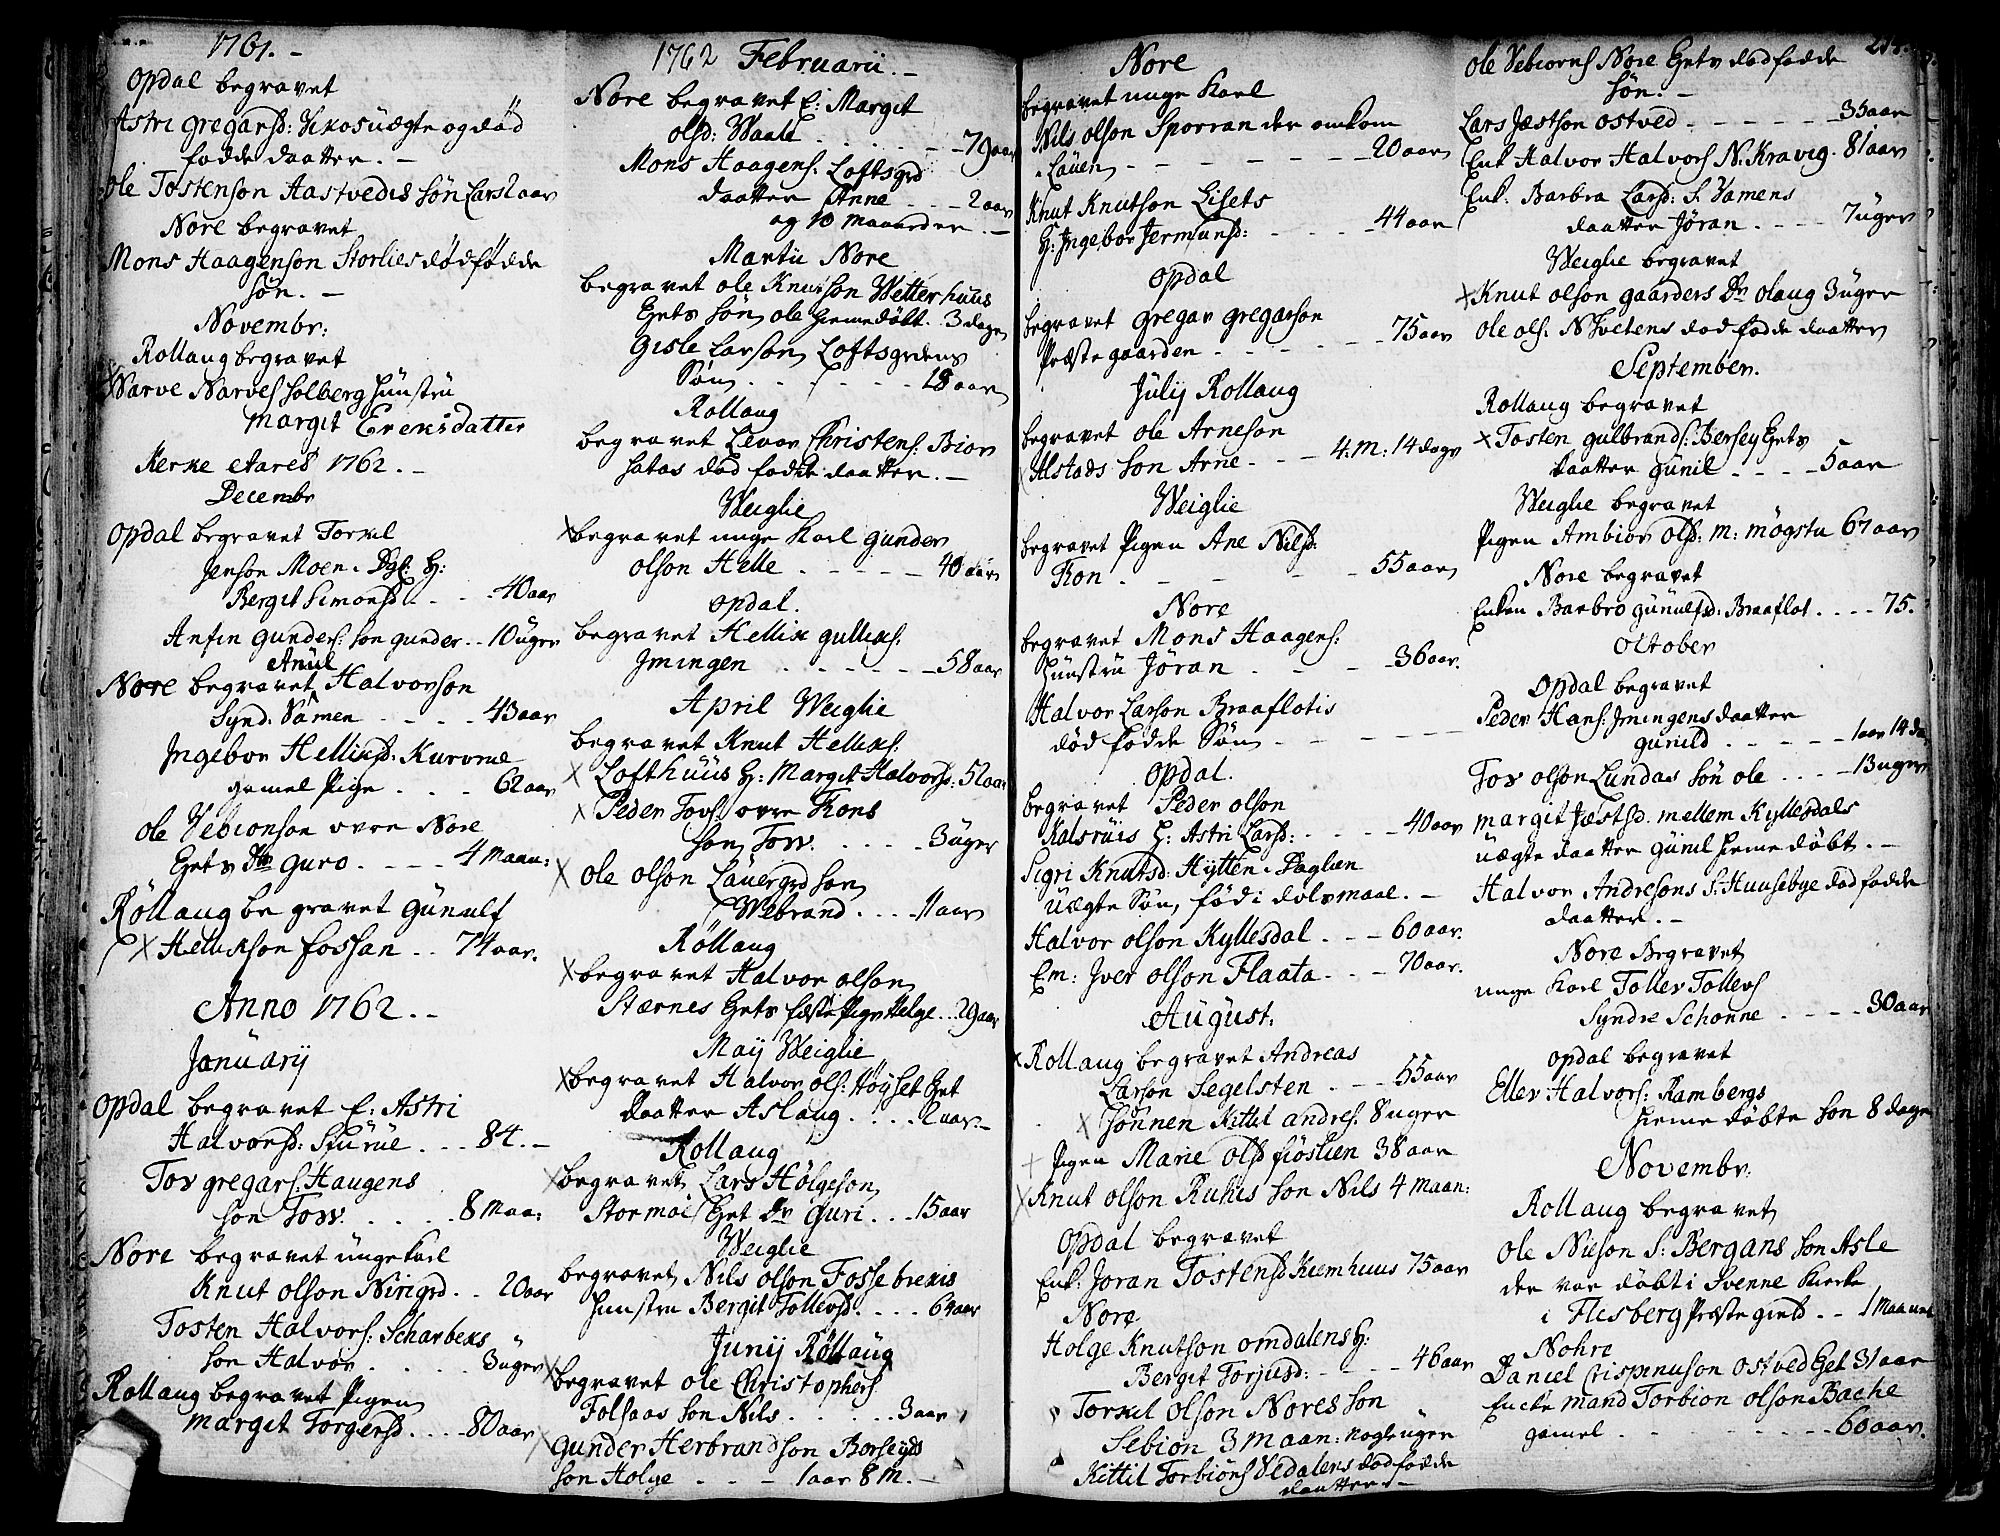 1761. -
Opdal begravet
Astri Gregarsd: uægte og død
fødde daatter. -
Ole Tostenson Aastvedts søn Lars 2 aar
Nore begravet
Mons Haagenson Storlies dødfødde
søn. -
Novembr:
Rollaug begravet
X Narve Narves Solberg Huustru
Margit Ereksdatter
Kerke Aared 1762. -
Decembr
Opdal begravet Torkil
Jenson Moen. H:
Bergit Simonsd. - - 40 aar
Anfin Gunders: søn Gunder . . 10 uger
Anul
Nore begravet Halvorson
Synd. Våmen - - - - 43 aar
Ingebor Helliksd: Kurvme
gamel Pige . . . - 62 aar
Ole Vebionson ovre Nore
Gets Dr Guro. - - - - 4 Maan:
Röllaug begravet Gunulf
X Helikson Fossan . . 74 aar.
Anno 1762. -
Januarij
Opdal begravet E: Astri
Halvorsd: Sturue . . . 84. -
Tov Gregars: Haugens
søn Tov. . . . . 8 Maa:
Nore begravet unge Karl
Knut Olson Nirigrd . . 20 aar
Tosten Halvors: Scharbeks
søn Halvor . . . . . 3 uger
Rollaug begravet Pigen
Margit Torgersd. . . . 80 aar
1762 Februarii. -
Nore begravet E: Margit
Olsd: Waale . . . . - - 79 aar
Mons Haagens: Loftsgrd
daatter Anne - - - 2 aar
og 10 maaneder. -
Martii Nore
begravet Ole Knutson Wetterhuus
Gets søn Ole hiemedöbt. 3 dage
Gisle Larson Loftsgrdens
Søn . . . . . . 18 aar
Rollaug
begravet Levor Christens: Bior
satas død fødde daatter. -
Weiglie
X begravet unge Karl Gunder
Olson Helle - - - - - 40 aar
Opdal.
begravet Hellik Gulliks:
Jmingen . - - - - 58 aar
April Weiglie
begravet Knut Helliks:
X Lofthuus H: Margit Halvorsd: 52 aar
X Peder Tovs: ovre Kons
søn Tov. . . . . 3 uger
X Ole Olson Läuergrd søn
Webrand . . . 11 aar
Röllaug
X begravet Halvor Olson
Stærnes Gets fæste Pige Helge . . 29 aar
May Weiglie
X begravet Halvor Ols: Höyset Get
daatter Aslaug . . . . 2 aar. -
Rollaug
X begravet Lars Hølgeson
Stormoi Get Dr Guri . . . 15 aar
Weiglie
begravet Nils Olson Fossebrekis
Huustru Bergit Tollevsd. . . . 64 aar
Junij Röllaug
X begravet Ole Christophers
Folsaas søn Nils . . . . . 3 aar
X Gunder Herbrandson Borseyds
søn Holge - - - 1 aar 8 M. -
Nore
begravet unge Karl
Nils Olson Sporran der omkom
i Läuen - - - - - - - 20 aar
Knut Knutson Lisets
H: Ingebor Jermunsd: - - - - 44 aar
Opdal
begravet Gregar Gregarson
Præstegaarden . - - - - - 75 aar
Julij Rollaug
begravet Ole Arneson
Alstads søn Arne. - - - 4: M: 14 dage
Weiglie
begravet Pigen Ane Nilsd:
Kon . - - - - - 55 aar
Nore
begravet Mons Haagens:
Huustru Jöran . - - - - 36 aar.
Halvor Larson Braaflotis
död födde Sön - - - - - -
Opdal.
begravet Peder Olson
Kalsruis H: Astri Larsd: - - - - - 40 aar
Sigri Knutsd: Hytten. Daglien
uægte Sön, föd i dolvmaal. -
Halvor Olson Kyllesdal . - - 60 aar.
Em: Jver Olson Flaata - - - 70 aar.
August:
X Rollaug begravet Andreas
Larson Segelsten . - - - 55 aar
X Sønnen Kittil Andres: 8 uger
+ Pigen Marie Olsd Fiöslien 38 aar
X Knut Olson Rukis søn Nils 4 Maan:
Opdal begravet
Enk: Joran Tostensd Kiemhuus 75 aar
Nore
Holge Knutson Omdalens H:
Bergit Torjusd: - - - - 46 aar
Torkil Olson Nores søn
Sebion 3 maan: nogle uger
Kittil Torbiöns Vedalens dødfødde
daatter. -
214.
Ole Vebiorns Nore Gets dødfødde
søn. -
Lars Jæstson Ostved . - - - - - - 35 aar
Enk Halvor Halvors N. Kravig. 81 aar
Enk. Barbra Larsd: S. Vamens
daatter Jøran . - - - 7 uger
Weiglie begravet
X Knut Olson Gaarders Dr Olaug 3 uger
Ole Ols: N. Tvetens dødfødde daatter
September.
Rollaug begravet
X Tosten Gulbrands: Bersey Gets
daatter Gunil - - - - 5 aar
Weiglie begravet
Pigen Ambior Olsd: M: Mögstu 67 aar
Nore begravet
Enken Barbro Gunulfsd: Braaflot . . - - 75.
October
Opdal begravet
Peder Hans: Jmingens daatter
Gunild . . - - - 1 aar 14 da
Tov Olson Lundas sön Ole . . . - 13 uger
Margit Jæstsd. mellem Kyllesdals
uægte daatter Gunil hiemedöbt. -
Halvor Andresons S: Huusebye dødfødde
daatter. -
Nore Begravet
unge Karl Tollev Tollevs
Syndre Schonne - - - - 30 aar
Opdal begravet
Ellev Halvors: Rambergs
hiemedøbte søn 8 dage
Novembr:
Rollaug begravet
Ole Nilson S: Bergans søn Asle
der var döbt i Svenne Kirke
i Flesberg Præstegield . . 1 Maanet
Nohre
Daniel Crispinuson Ostved Get 31 aar
Encke mand Torbion Olson Bakke
gamel . - - - - - - - - 60 aar.